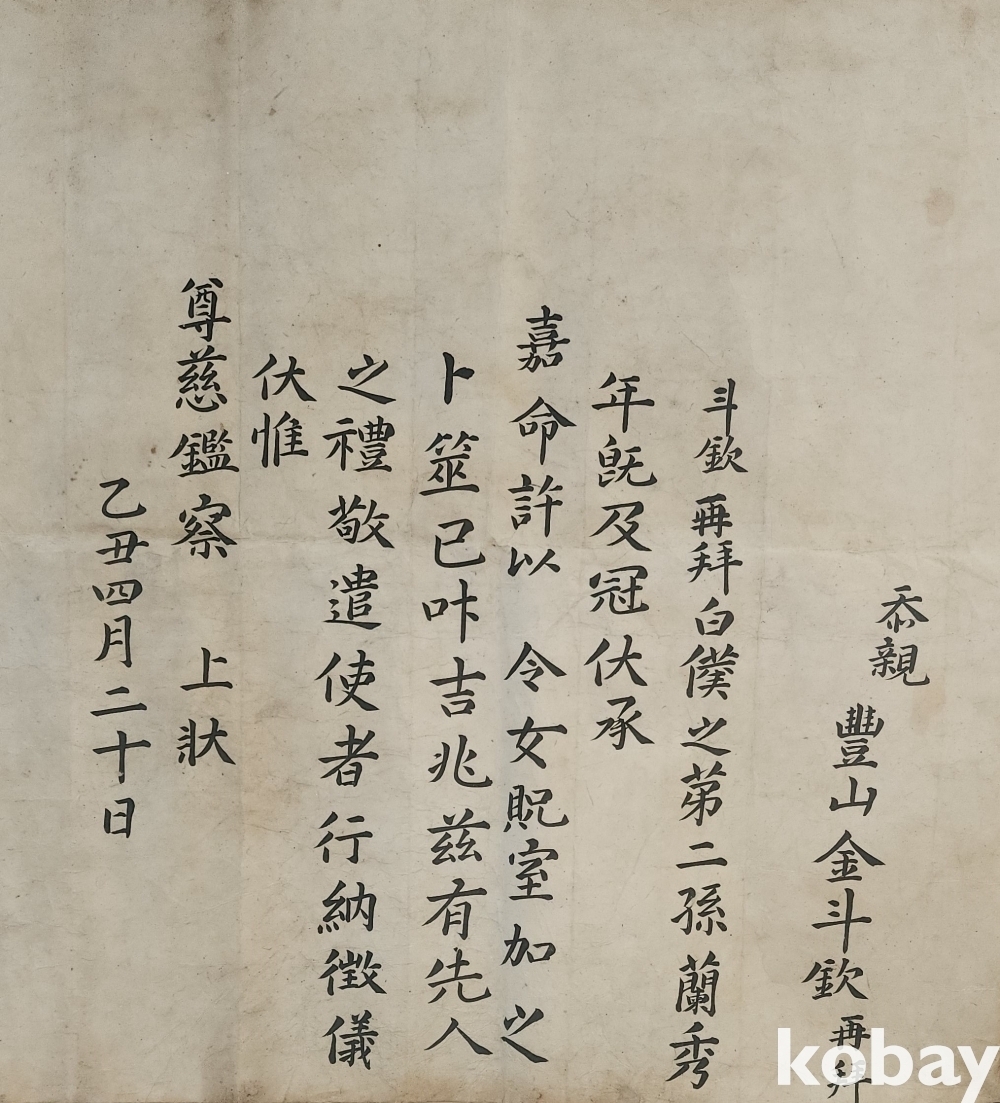 忝親
豐山金斗欽再拜
斗欽再拜白僕之苐二孫蘭秀
年旣及冠伏承
嘉命許以 令女貺室加之
卜筮已叶吉兆茲有先人
之禮敬遣使者行納徵儀
伏惟
尊慈鑑察 上狀
乙丑四月二十日
kobay